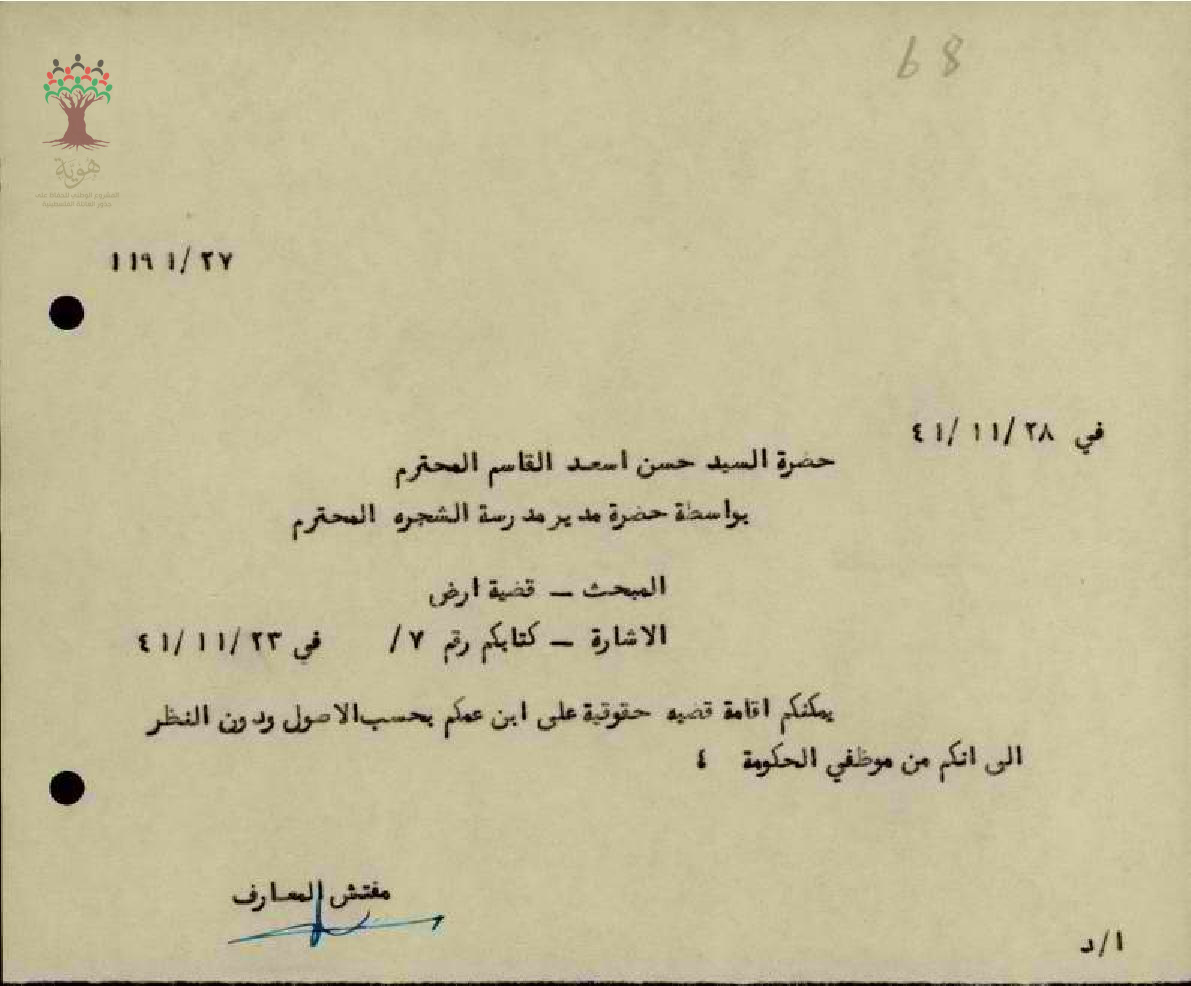 68
هوية
المشروع الوطني للحفاظ على
جذور العائلة الفلسطينية
١١٩١/٢٧
في ٤١/١١/٢٨
حضرة السيد حسن اسعد القاسم المحترم
بواسطة حضرة مدير مدرسة الشجره المحترم
المبحث – قضية ارض
الاشارة – كتابكم رقم ٧/ في ٤١/١١/٢٣
يمكنكم اقامة قضيه حقوقية على ابن عمكم بحسب الاصول ودون النظر
الى انكم من موظفي الحكومة ٤
مفتش المعارف
ا/د